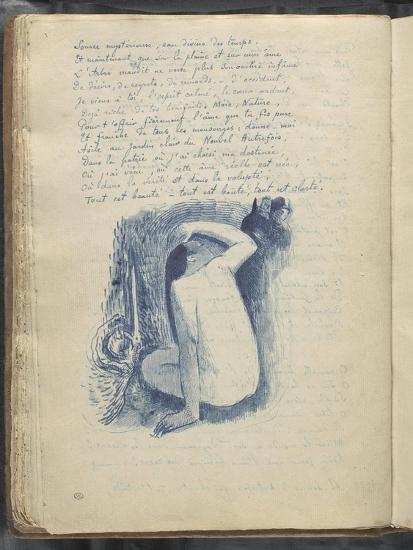 Source mystérieuse, eau divine des temps,
Et maintenant que sur la plaine et sur mon âme
L'Arbre maudit ne verse plus son ombre infâme
De désirs, de regrets, de remords, – d'occident,
Je viens à toi, l'esprit calmé, le cœur ardent,
Déjà riche de tes bienfaits, Moïa, Nature,
Pour t'offrir fièrement l'âme que tu fis pure
Et franche. Tu tous les mensonges, donne-moi
Asile au jardin clair du Nouvel Autrefois,
Dans la patrie où j'ai choisi ma destinée,
Où j'ai vécu, où cette âme réelle est née,
Où dans la vérité et dans la volupté,
Tout est beauté – tout est bonté, tout est clarté.